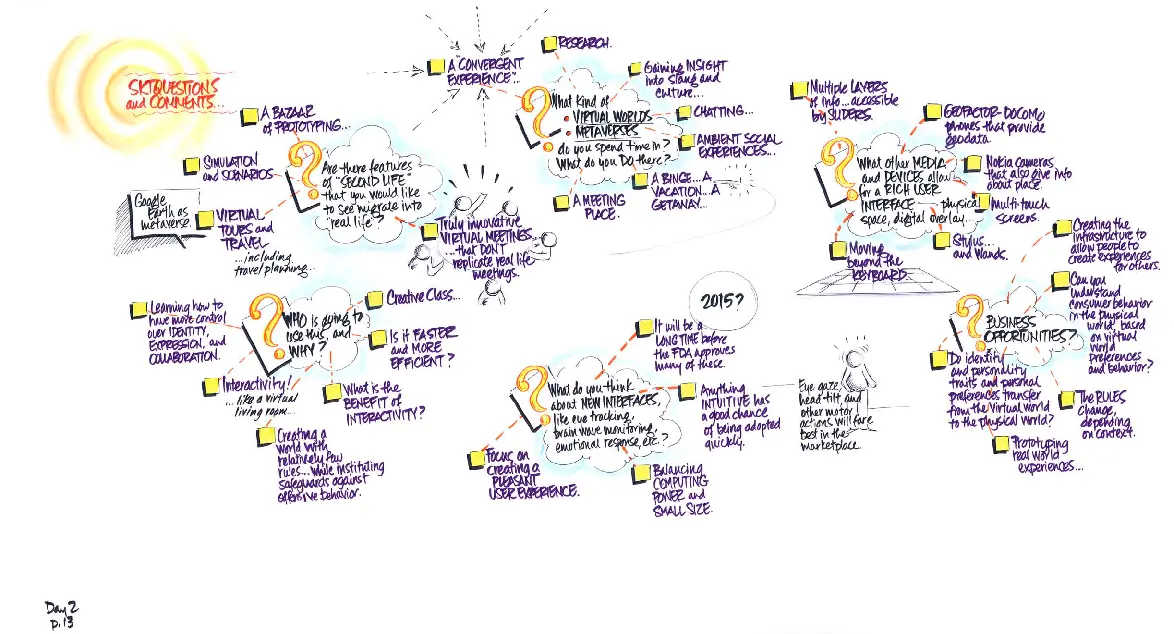 SKTQUESTIONS
and COMMENTS...
A BAZAAR
of PROTOTYPING...
SIMULATION
and SCENARIOS
Google
Earth as
metaverse.
VIRTUAL
TOURS and
TRAVEL
...including
travel planning...
Are there features
of "SECOND LIFE"
that you would like
to see migrate into
real life?
Truly innovative
VIRTUAL MEETINGS...
...that DON'T
replicate real life
meetings.
A "CONVERGENT
EXPERIENCE"...
RESEARCH.
Gaining INSIGHT
into slang and
culture...
CHATTING...
AMBIENT SOCIAL
EXPERIENCES...
A BINGE... A
VACATION... A
GETAWAY...
A MEETING
PLACE.
What kind of
• VIRTUAL WORLDS
• METAVERSES
do you spend time in?
What do you DO there?
Multiple LAYERS
of info... accessible
by SLIDERS.
GEOFACTOR-DOCOMO
phones that provide
geodata.
Nokia cameras
that also give info
about place.
Multi-touch
screens.
Stylus...
and Wands.
Moving
beyond the
KEYBOARD.
What other MEDIA
and DEVICES allow
for a RICH USER
INTERFACE — physical
space, digital overlay...
Learning how to
have more control
over IDENTITY,
EXPRESSION, and
COLLABORATION.
Interactivity!
...like a virtual
living room...
Creating a
world with
relatively few
rules... while instituting
safeguards against
offensive behavior.
WHO is going to
use this, and
WHY?
Creative Class...
Is it FASTER
and MORE
EFFICIENT?
What is the
BENEFIT of
INTERACTIVITY?
2015?
It will be a
LONG TIME before
the FDA approves
many of these.
Anything
INTUITIVE has
a good chance
of being adopted
quickly.
Eye gaze,
head tilt and
other motor
actions will fare
best in the
marketplace.
What do you think
about NEW INTERFACES,
like eye tracking,
brain wave monitoring,
emotional response, etc.?
Focus on
creating a
PLEASANT
USER EXPERIENCE.
Balancing
COMPUTING
POWER and
SMALL SIZE.
Creating the
infrastructure to
allow people to
create experiences
for others.
Can you
understand
consumer behavior
in the physical
world, based
on virtual
world
preferences
and behavior?
BUSINESS
OPPORTUNITIES?
Do identity
and personality
traits and personal
preferences transfer
from the virtual world
to the physical world?
The RULES
change,
depending
on context.
Prototyping
real world
experiences...
Day 2
p.13